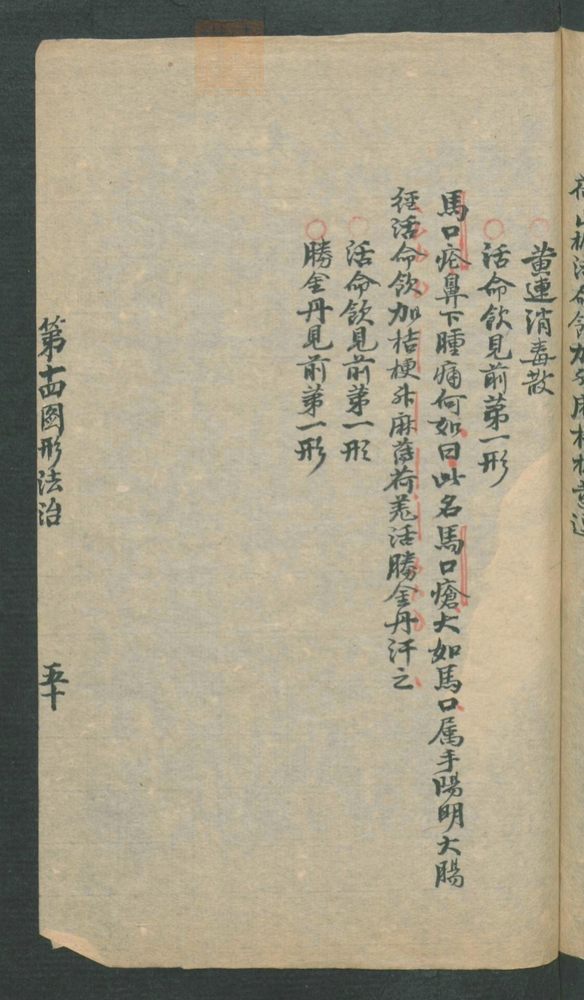 黄連消毒散
活命飲見前第一形
馬口疮鼻下腫痛何如曰此名馬口瘡大如馬口属手陽明大腸
経活命飲加桔梗升麻薄荷羌活勝金丹汗之
活命飲見前第一形
勝金丹見前第一形
第十四圖形法治
五十